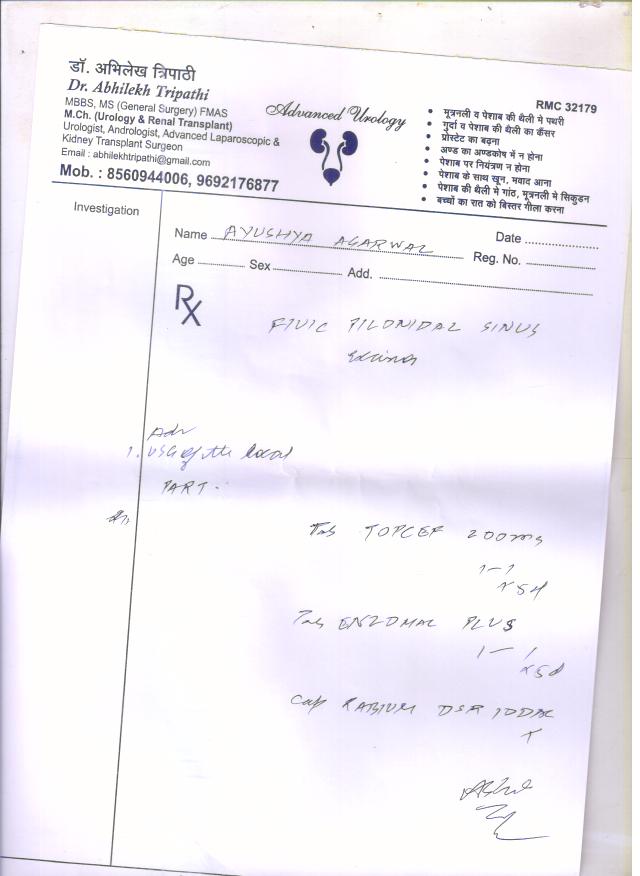 डॉ. अभिलेख त्रिपाठी
Dr. Abhilekh Tripathi
MBBS, MS (General Surgery) FMAS
M.Ch. (Urology & Renal Transplant)
Urologist, Andrologist, Advanced Laparoscopic &
Kidney Transplant Surgeon
Email : abhilekhtripathi@gmail.com
Mob. : 8560944006, 9692176877
Advanced Urology
RMC 32179
• मूत्रनली व पेशाब की थैली मे पथरी
• गुर्दा व पेशाब की थैली का कैंसर
• प्रोस्टेट का बढ़ना
• अण्ड का अण्डकोष में न होना
• पेशाब पर नियंत्रण न होना
• पेशाब के साथ खून, मवाद आना
• पेशाब की थैली मे गांठ, मूत्रनली मे सिकुडन
• बच्चों का रात को बिस्तर गीला करना
Investigation
Name AYUSHYA AGARWAL Date
Age Sex Add. Reg. No.
Rx
PILONIDAL SINUS
Adv
1. USG of the local
PART.
Tab TOPCEF 200mg
1-1
x5d
Tab ENZOMAC PLUS
1-1
x5d
Cap RABIUM DSR 1OD